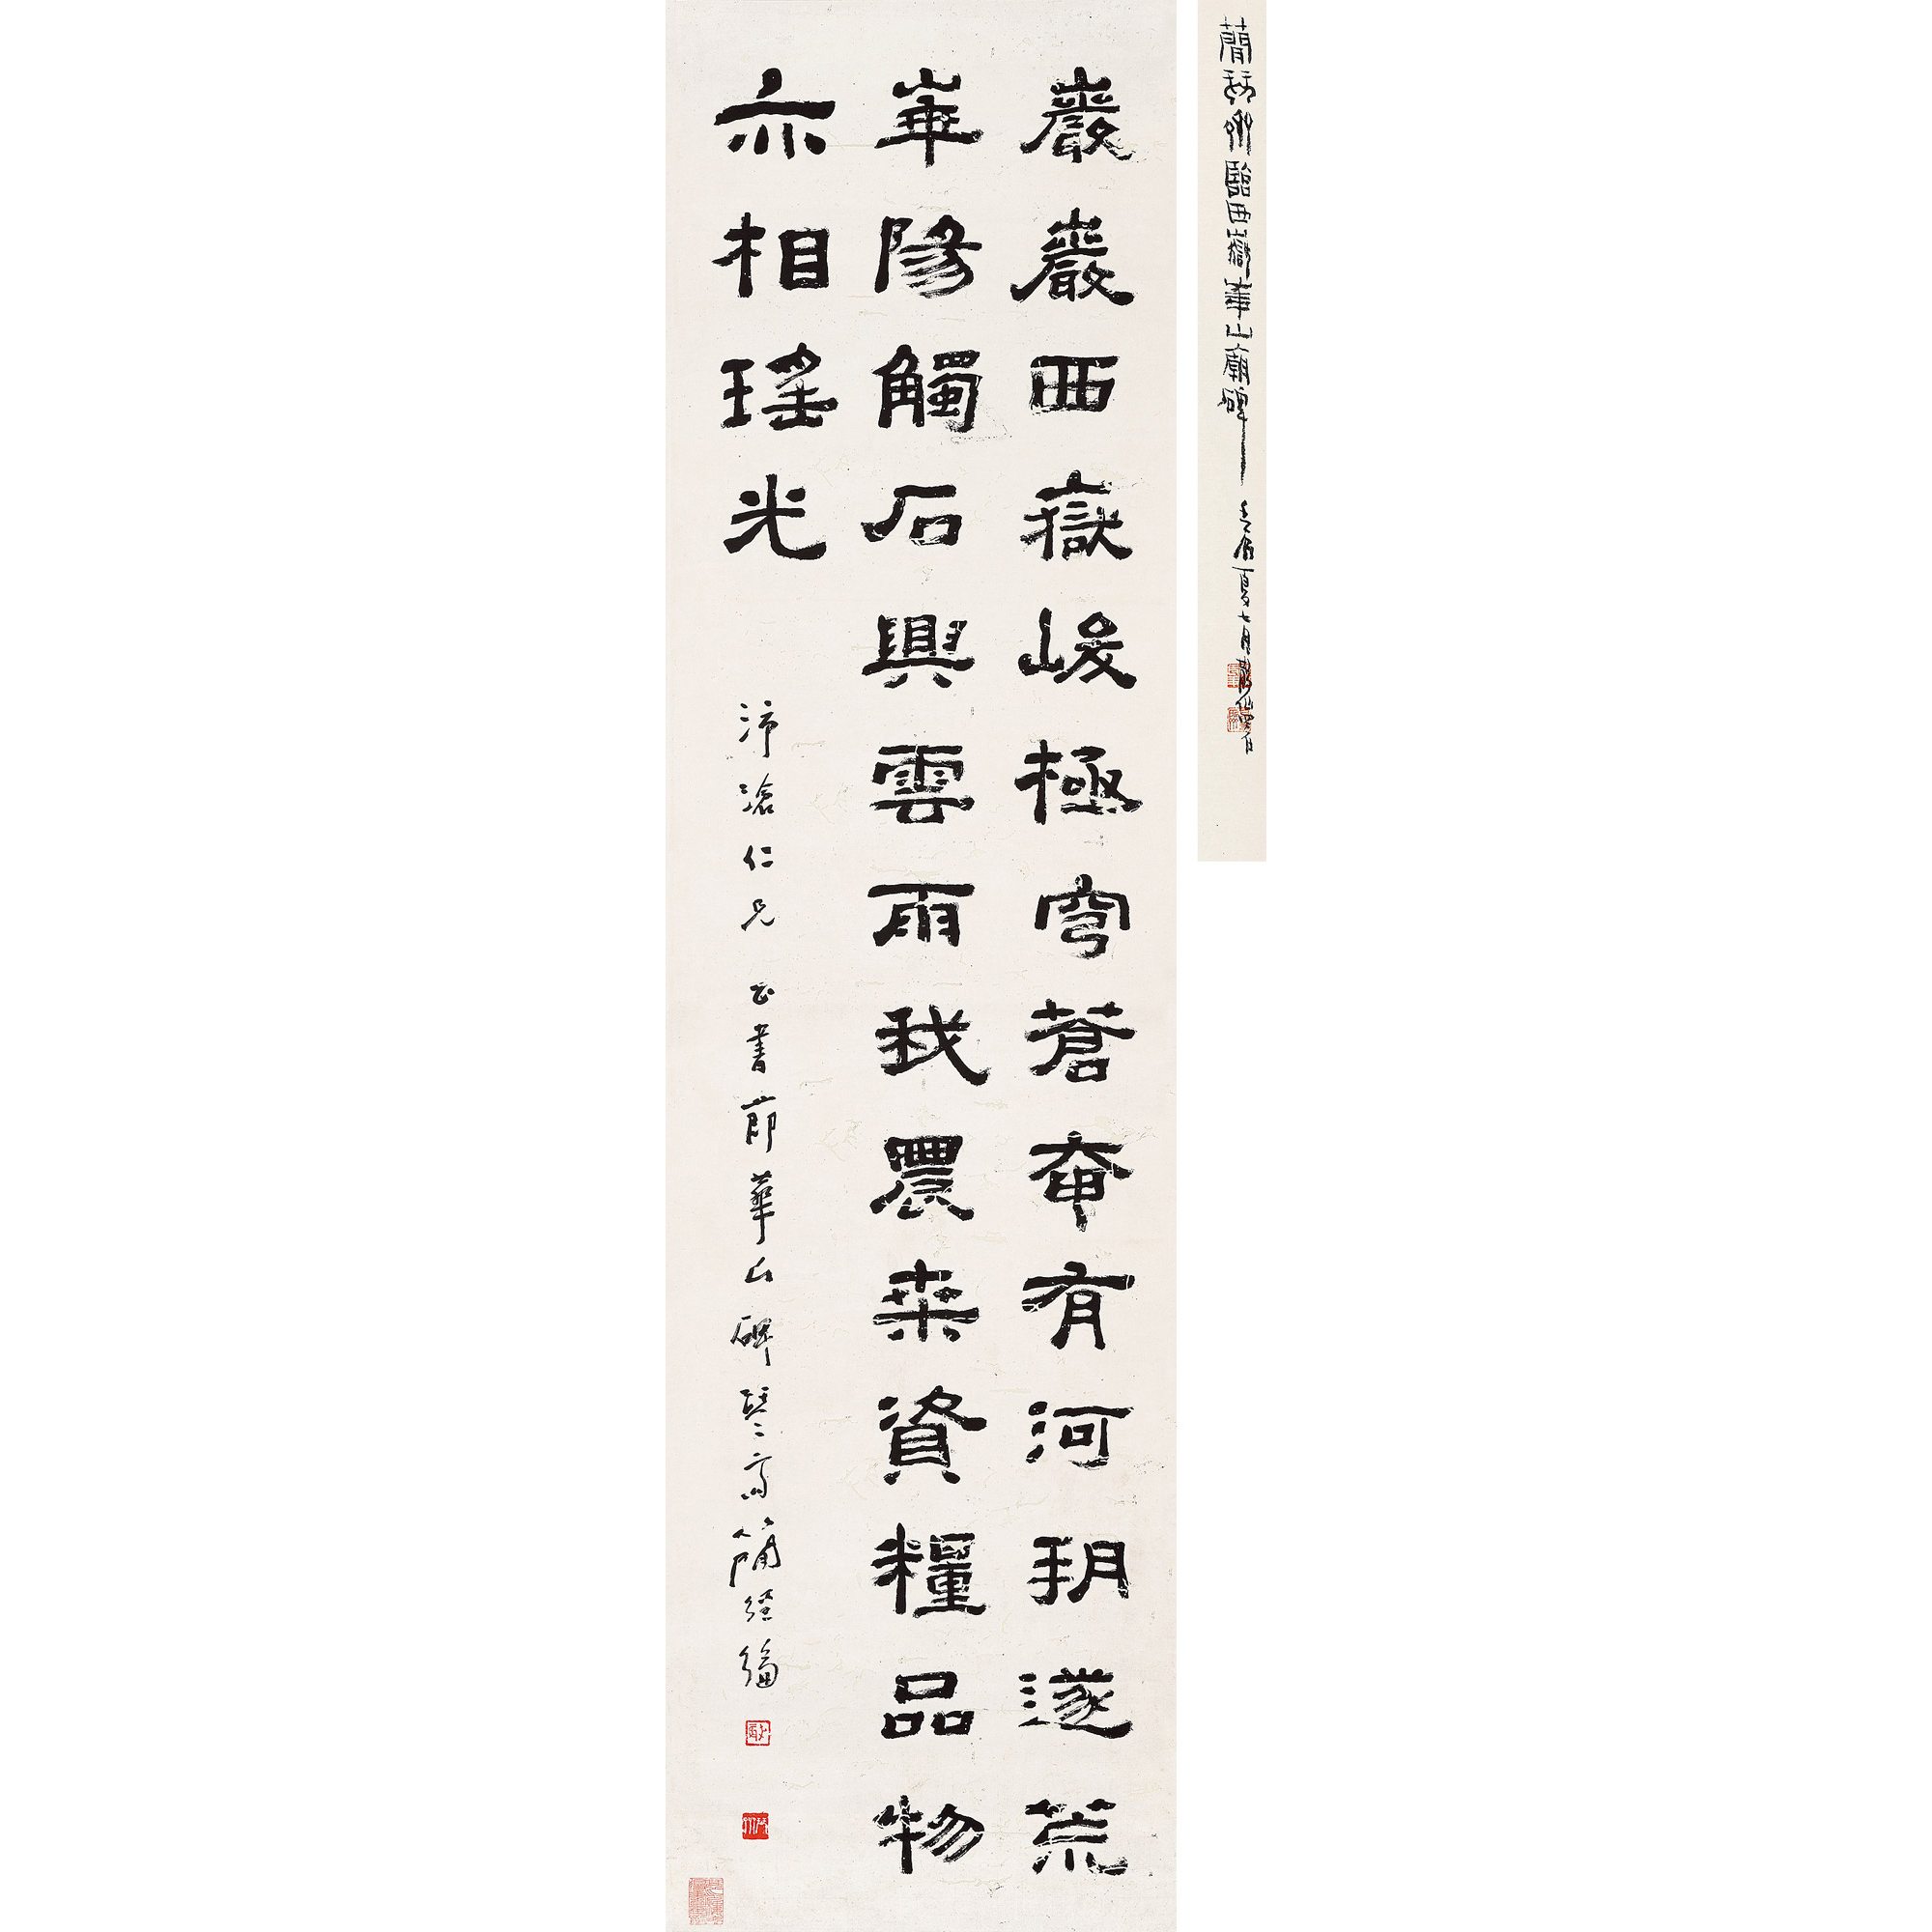 簡琴齋臨西嶽華山廟碑 夏七月
巖巖西嶽峻極穹蒼奄有河朔遂荒
華陽觸石興雲雨我農桑資糧品物
亦相瑤光
沛滄仁兄 正書節華山碑琴齋簡經綸